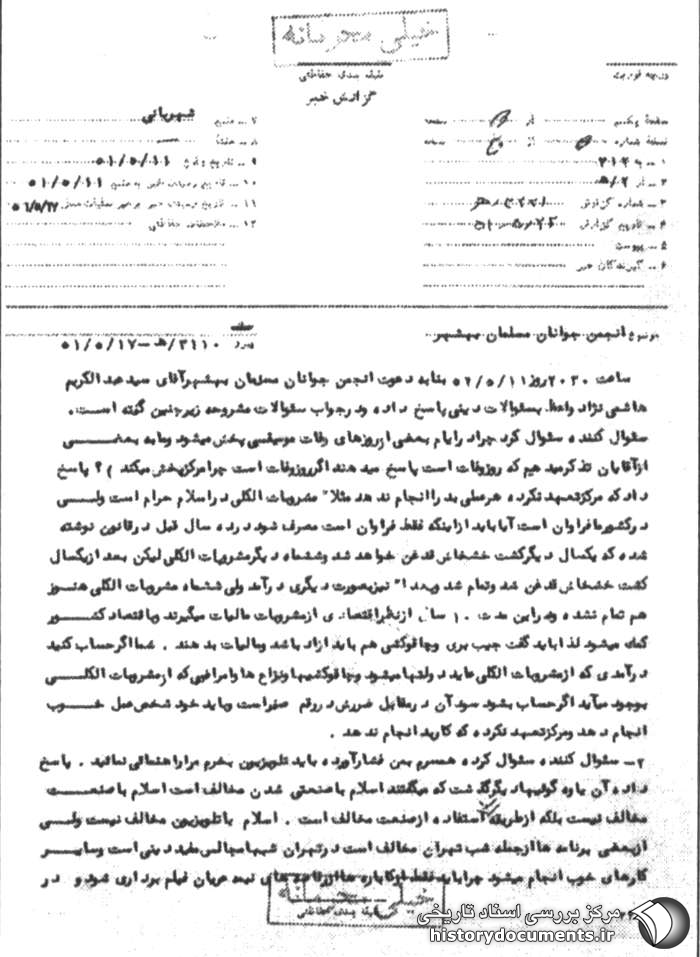 خیلی محرمانه
طبقه بندی حفاظتی
گزارش خبر
درجه فوریت
صفحه یکم از صفحه
نسخه شماره از نسخه
۱ ـ به ۳۱۲
۲ ـ از ۲/ه
۳ ـ شماره گزارش
۴ ـ تاریخ گزارش
۵ ـ پیوست
۶ ـ گیرندگان خبر
۷ ـ منبع شهربانی
۸ ـ منشأ
۹ ـ تاریخ وقوع ۵۱/۵/۱۱
۱۰ ـ تاریخ رسیدن خبر به منبع ۵۱/۵/۱۱
۱۱ ـ تاریخ رسیدن خبر برهبر عملیات ۵۱/۵/۱۷
۱۲ ـ ملاحظات حفاظتی
موضوع انجمن جوانان مسلمان بهشهر
۳۱۱۰/ه‍ ـ ۵۱/۵/۱۷
ساعت ۲۰۳۰ روز ۵۱/۵/۱۱ بنا به دعوت انجمن جوانان مسلمان بهشهر آقای سید عبدالکریم
هاشمی نژاد واعظ بسئوالات دینی پاسخ داده و در جواب سئوالات مشروحه زیر چنین گفته است.
سئوال کننده سئوال کرد چرا در ایام بعضی از روزهای وفات موسیقی پخش میشود و ما به بعضی
از آقایان تذکر میدهیم که روز وفات است پاسخ میدهند اگر روز وفات است چرا مرکز پخش میکند )؟ پاسخ
داد که مرکز تعهد نکرده هر عملی بد را انجام ندهد مثلا" مشروبات الکلی در اسلام حرام است ولی
در کشور ما فراوان است آیا باید از اینکه فقط فراوان است مصرف شود در ده سال قبل در قانون نوشته
شده که یکسال دیگر کشت خشخاش قدغن خواهد شد و ششماه دیگر مشروبات الکلی لیکن بعد از یکسال
کشت خشخاش قدغن شد و تمام شد و بعدا" نیز بصورت دیگری در آمد ولی ششماه مشروبات الکلی هنوز
هم تمام نشده و در این مدت ۱۰ سال از نظر اقتصادی از مشروبات مالیات میگیرند و باقتصاد کشور
کمک میشود لذا باید گفت جیب بری و چاقوکشی هم باید آزاد باشد و مالیات بدهند . شما اگر حساب کنید
درآمدی که از مشروبات الکلی عاید دولتها میشود و چاقوکشیها و نزاع ها و امراضی که از مشروبات الکلی
بوجود میآید اگر حساب بشود سود آن در مقابل ضررش در رقم صفر است و باید خود شخص عمل خوب
انجام دهد و مرکز تعهد نکرده که کار بد انجام ندهد .
۲ـ سئوال کننده سئوال کرده همسرم بمن فشار آورده باید تلویزیون بخرم مرا راهنمائی نمائید . پاسخ
داده آن یاوه گوئیها دیگر گذشت که میگفتند اسلام با صنعتی شدن مخالف است اسلام با صنعت
مخالف نیست بلکه از طریقه استفاده از صنعت مخالف است . اسلام با تلویزیون مخالف نیست ولی
از بعضی برنامه ها از جمله شب تهران مخالف است در تهران شبها مجالس مفید دینی است و سایر
کارهای خوب انجام میشود چرا باید فقط از کاباره ها از رقاصه های نیمه عریان فیلم برداری شود و در
خیلی محرمانه
طبقه بندی حفاظتی
مرکز بررسی اسناد تاریخی
historydocuments.ir